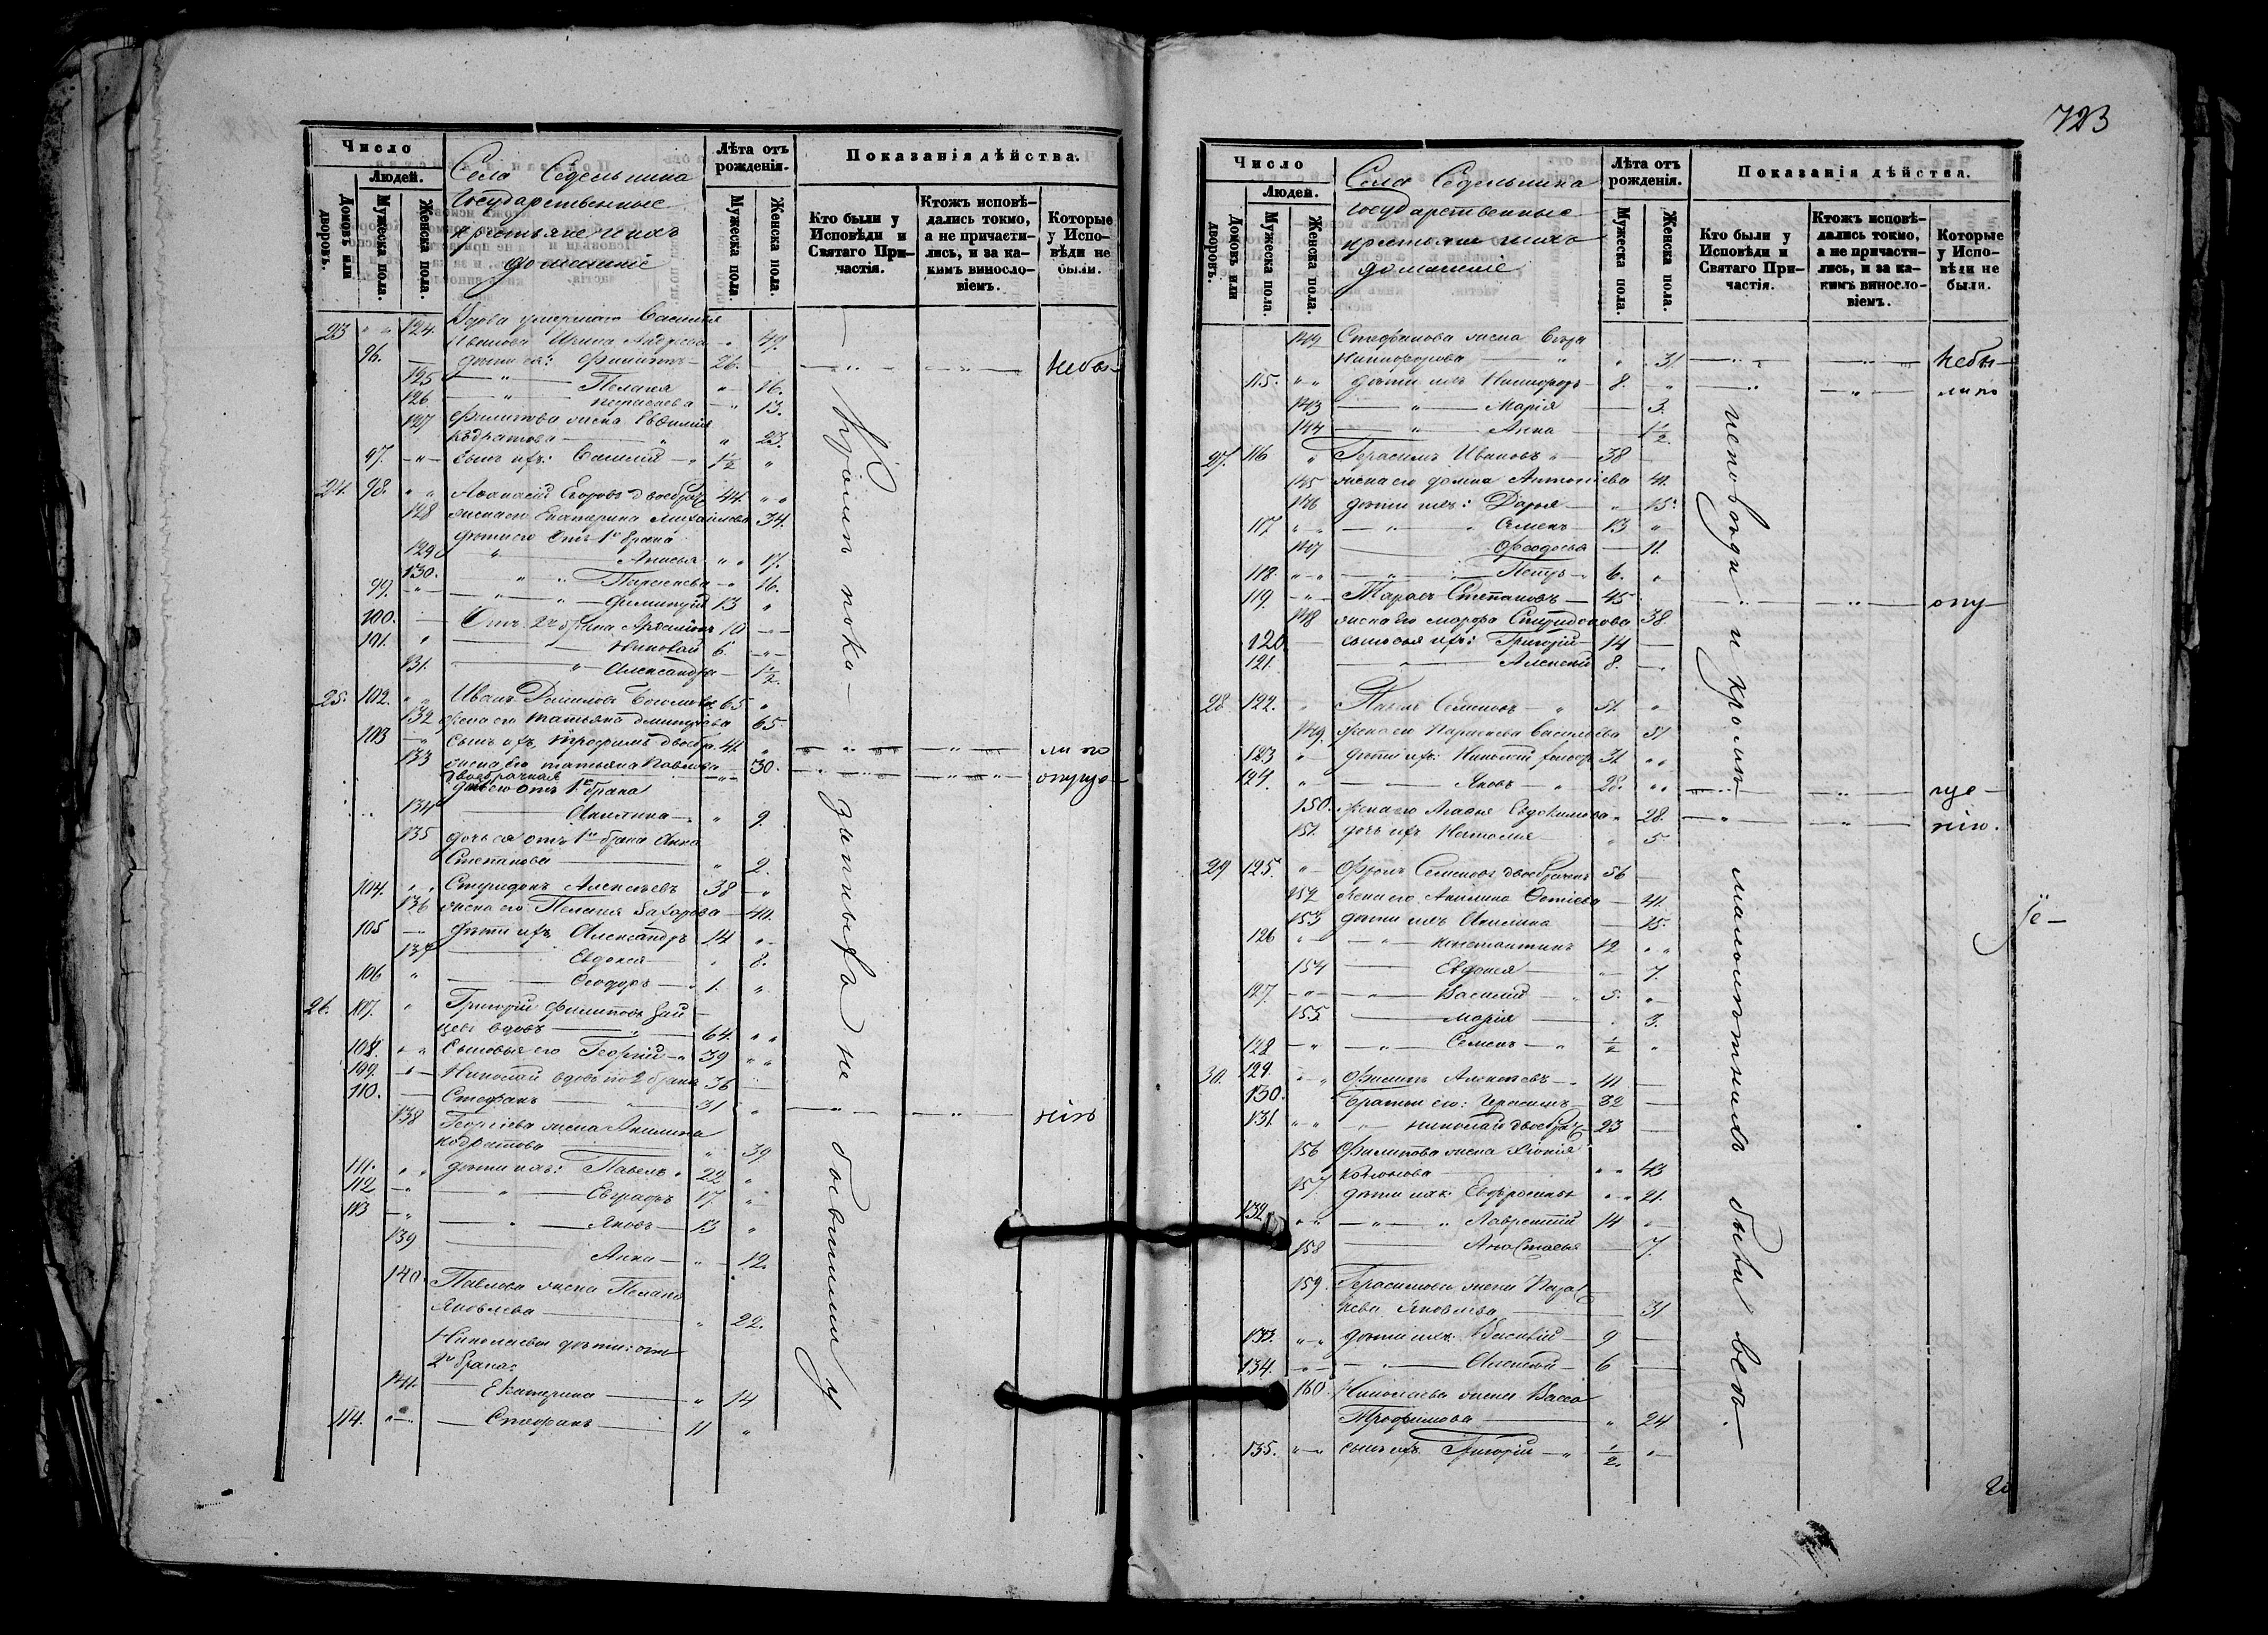 723
Число
Людей.
Домовъ или дворовъ.
Мужеска пола.
Женска пола.
Села Седельника
Государственные
крестьяне и ихъ
домашніе
Лѣта отъ рожденія.
Мужеска пола.
Женска пола.
Показанія дѣйства.
Кто были у Исповѣди и Святаго Причастія.
Ктожъ исповѣдались токмо, а не причастились, и за какимъ винословіемъ.
Которые у Исповѣди не были.
23 124. Вдова умершаго Василія
Иванова Ирина Андреева 49.
96. дѣти ея: Филиппъ 26. небы-
125 Пелагея 16.
126 Параскева 13.
127 Филипова жена Евфимія
23.
97. сынъ ихъ: Василій 1½
24. 98. Афанасій Егоровъ двоебрач 44.
128 жена его Екатерина Михайлова 34.
дѣти его отъ 1го брака
129 Анисья 17.
130. Параскева 16.
99. Филиппъ 13
100. Отъ 2го брака 10
101. Николай 6.
131. Александра 1½
25. 102. Иванъ 65
132 жена его Татьяна Дмитріева 65
103 сынъ ихъ Трофимъ двоебр. 41. ли по
133 жена его Татьяна Павлова 30. опуще-
двоебрачная
дѣти его отъ 1го брака
134 Акилина 9.
135 дочь ея отъ 1го брака Анна
Степанова 2.
104. Спиридонъ Алексѣевъ 38
136 жена его Пелагея Захарова 40.
105 дѣти ихъ Александръ 14
137 Евдокея 8.
106 Ѳеодоръ 1.
26. 107. Григорій Филиповъ Зай-
цевъ вдовъ 64.
108. Сыновья его Георгій 39
109. Николай вдовъ по 2 бракѣ 36
110. Стефанъ 31 нію
138 Георгіева жена Акилина
Кодратова 39
111. дѣти ихъ: Павелъ 22
112 Евграфъ 17.
113 Яковъ 13
139 Анна 12.
140. Павлова жена Пелагея
Яковлева 22.
Николаевы дѣти: отъ
2го брака:
141. Екатерина 14
114. Стефанъ 11
Кромѣ пока-
занныхъ не бывшими у
Число
Людей.
Домовъ или дворовъ.
Мужеска пола.
Женска пола.
Села Седельника
Государственные
крестьяне и ихъ
домашніе
Лѣта отъ рожденія.
Мужеска пола.
Женска пола.
Показанія дѣйства.
Кто были у Исповѣди и Святаго Причастія.
Ктожъ исповѣдались токмо, а не причастились, и за какимъ винословіемъ.
Которые у Исповѣди не были.
142 Стефанова жена Вѣра
Никифорова 31 небы-
115. дѣти ихъ Никифоръ 8. ли по
143 Марія 3.
144 Анна 1½
27. 116 Герасимъ Ивановъ 38
145 жена его Домна Антоніева 41.
146 дѣти ихъ: Дарья 15.
117 Семенъ 13
147 Ѳеодосья 11.
118. Петръ 6.
119. Тарасъ Степановъ 45 опу-
148 жена его Марѳа Спиридонова 38.
120. сыновья ихъ: Григорій 14
121. Алексѣй 8.
28 122. Павелъ Семеновъ 51.
149. жена его Параскева Васильева 51
123 дѣти ихъ: Николай 31.
124. Яковъ 28. ще-
150. жена его Агафья Евдокимова 28. нію.
151. дочь ихъ Наталія 5.
29 125. Фролъ Семеновъ двоебрачный 56
152 жена его Акилина 41.
153 дѣти ихъ Акилина 15.
126 Константинъ 12
154 Евдокея 7.
127. Василій 5.
155 Марія 3.
128 Семенъ ½
30. 129. Филипъ Алексѣевъ 40
130. братья его: Герасимъ 32
131. Николай двоебрач 23
156 Филипова жена Хіонія
43
157 дѣти ихъ Евфросинья 21.
132. Лаврентій 14
158 Анастасья 7.
159. Герасимова жена
Яковлева 31
133. дѣти ихъ: Василій 9
134. Алексѣй 6
160 Николаева жена Васса
Трофимова 24
135. сынъ ихъ Григорій ½
исповѣди и кромѣ малолѣтнихъ были всѣ.